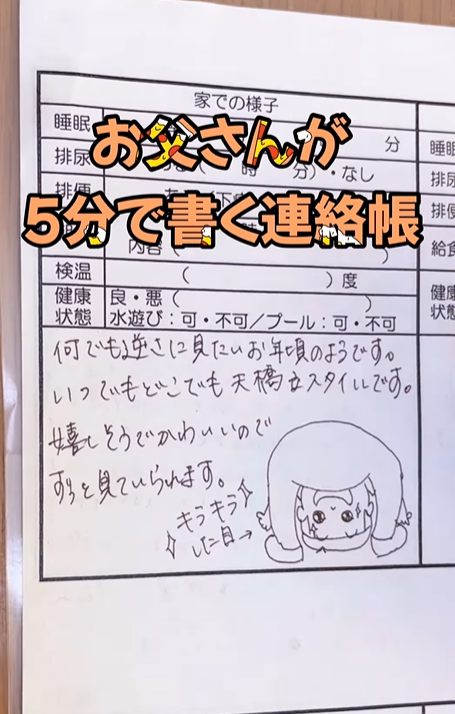 家での様子
睡眠 分 睡眠
お父さんが
排尿 時 分）・なし 排尿
排便 排便
5分で書く連絡帳
内容（ ） 給食
検温 （ ）度
健康状態 良・悪（ ） 健康状態
水遊び：可・不可／プール：可・不可
何でも逆さに見たいお年頃のようです。
いつでもどこでも天橋立スタイルです。
嬉しそうでかわいいので
ずっと見ていられます。
キラキラ
した目→